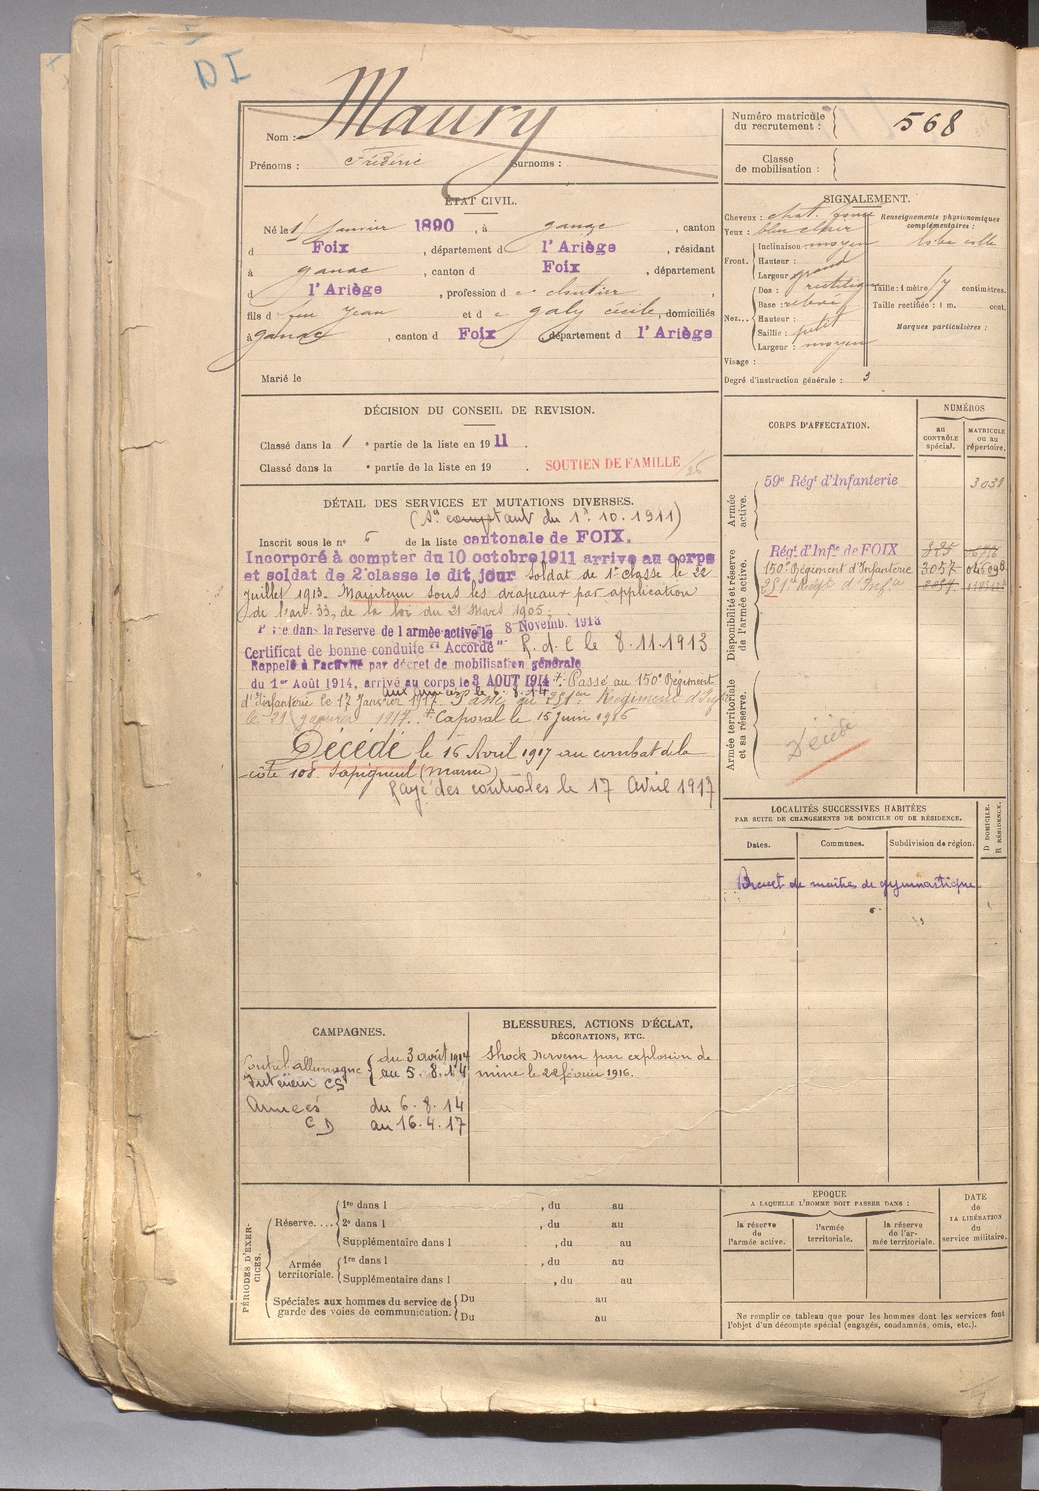 DI
Nom : Maury
Prénoms : Frédéric Surnoms :
ÉTAT CIVIL.
Né le 1er Janvier 1890, à ganac, canton
d Foix, département d l'Ariège, résidant
à ganac, canton d Foix, département
d l'Ariège, profession d e
fils d e feu Jean et d e galy cécile, domiciliés
à ganac, canton d Foix, département d l'Ariège
Marié le
DÉCISION DU CONSEIL DE REVISION.
Classé dans la 1 e partie de la liste en 1911.
Classé dans la e partie de la liste en 19 . SOUTIEN DE FAMILLE
DÉTAIL DES SERVICES ET MUTATIONS DIVERSES.
(Se comptant du 1er. 10. 1911)
Inscrit sous le no 6 de la liste cantonale de FOIX.
Incorporé à compter du 10 octobre 1911 arrive au corps
et soldat de 2e classe le dit jour Soldat de 1e classe le 22
Juillet 1913. Maintenu sous les drapeaux par application
de l'art. 33, de la loi du 21 Mars 1905.
dans la reserve de l'armée active le 8 Novemb. 1913
Certificat de bonne conduite "Accordé" R. d. C le 8.11.1913
Rappelé à l'activité par décret de mobilisation générale
du 1er Août 1914, arrivé au corps le 3 AOUT 1914 + Passé au 150e Régiment
aux armées le 6.8.14
d'Infanterie le 17 Janvier 1917. Passé au 251em Régiment d'Infie
le 21 janvier 1917. + Caporal le 15 juin 1916
Décédé le 16 Avril 1917 au combat de la
côte 108 Sapigneul (Marne)
Rayé des contrôles le 17 Avril 1917
CAMPAGNES.
Contre l'allemagne { du 3 août 1914
Intérieur CS au 5.8.14
Armées du 6.8.14
CD au 16.4.17
BLESSURES, ACTIONS D'ÉCLAT,
DÉCORATIONS, ETC.
Shock nerveux par explosion de
mine le 22 février 1916.
PÉRIODES D'EXERCICES.
Réserve.... 1re dans l , du au
2e dans l , du au
Supplémentaire dans l , du au
Armée territoriale. 1re dans l , du au
Supplémentaire dans l , du au
Spéciales aux hommes du service de Du au
garde des voies de communication. Du au
Numéro matricule
du recrutement : 568
Classe
de mobilisation :
SIGNALEMENT.
Cheveux : chat. foncé
Yeux : bleu clair
Front. Inclinaison moyen
Hauteur :
Largeur grand
Nez... Dos : rectiligne
Base : relevé
Hauteur :
Saillie : petit
Largeur : moyen
Visage :
Degré d'instruction générale : 3
Renseignements physionomiques
complémentaires :
Taille : 1 mètre centimètres.
Taille rectifiée : 1 m. cent.
Marques particulières :
CORPS D'AFFECTATION.
NUMÉROS
au
CONTRÔLE
spécial.
MATRICULE
ou au
répertoire.
Armée active.
59e Régt d'Infanterie
Disponibilité et réserve de l'armée active.
Régt d'Infie de FOIX 825
150e Régiment d'Infanterie 3057
251e Régt d'Infie
Armée territoriale et sa réserve.
Décédé
LOCALITÉS SUCCESSIVES HABITÉES
PAR SUITE DE CHANGEMENTS DE DOMICILE OU DE RÉSIDENCE.
D DOMICILE.
R RÉSIDENCE.
Dates. Communes. Subdivision de région.
Brevet de maître de gymnastique.
ÉPOQUE
A LAQUELLE L'HOMME DOIT PASSER DANS :
la réserve
de
l'armée active.
l'armée
territoriale.
la réserve
de l'armée territoriale.
DATE
de
LA LIBÉRATION
du
service militaire.
Ne remplir ce tableau que pour les hommes dont les services font
l'objet d'un décompte spécial (engagés, condamnés, omis, etc.).